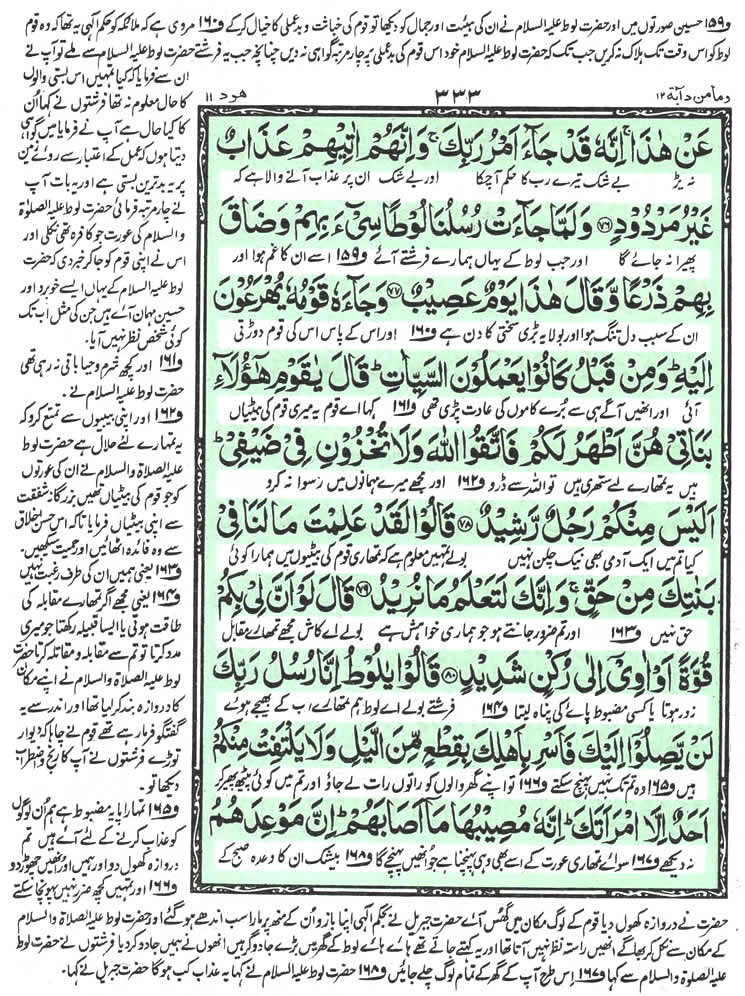 و۱۵۹ حسین صورتوں میں اور حضرت لوط علیہ السلام نے ان کی ہیئت اور جمال کو دیکھا تو قوم کی خباثت و بدعملی کا خیال کر کے و۱۶۰ مروی ہے کہ ملائکہ کو حکم الٰہی یہ تھا کہ وہ قوم
لوط کو اس وقت تک ہلاک نہ کریں جب تک کہ حضرت لوط علیہ السلام خود اس قوم کی بدعملی پر چار مرتبہ گواہی نہ دیں چنانچہ جب یہ فرشتے حضرت لوط علیہ السلام سے ملے تو آپ نے
ومامن دابۃ ۱۲
۳۳۳
ھود ۱۱
عَنْ هٰذَا ۚ اِنَّهٗ قَدْ جَآءَ اَمْرُ رَبِّكَ ۚ وَاِنَّهُمْ اٰتِيْهِمْ عَذَابٌ
نہ پڑ بے شک تیرے رب کا حکم آچکا اور بے شک ان پر عذاب آنے والا ہے کہ
غَيْرُ مَرْدُوْدٍ ۷۶ وَلَمَّا جَآءَتْ رُسُلُنَا لُوْطًا سِیْٓءَ بِهِمْ وَضَاقَ
پھیرا نہ جائے گا اور جب لوط کے یہاں ہمارے فرشتے آئے و۱۵۹ اسے ان کا غم ہوا اور
بِهِمْ ذَرْعًا وَّقَالَ هٰذَا يَوْمٌ عَصِيْبٌ ۷۷ وَجَآءَهٗ قَوْمُهٗ يُهْرَعُوْنَ
ان کے سبب دل تنگ ہوا اور بولا یہ بڑی سختی کا دن ہے و۱۶۰ اور اس کے پاس اس کی قوم دوڑتی
اِلَيْهِ ؕ وَمِنْ قَبْلُ كَانُوْا يَعْمَلُوْنَ السَّيِّاٰتِ ؕ قَالَ يٰقَوْمِ هٰٓؤُلَآءِ
آئی اور انہیں آگے ہی سے برے کاموں کی عادت پڑی تھی و۱۶۱ کہا اے قوم یہ میری قوم کی بیٹیاں
بَنَاتِيْ هُنَّ اَطْهَرُ لَكُمْ فَاتَّقُوا اللّٰهَ وَلَا تُخْزُوْنِ فِيْ ضَيْفِيْ ؕ
ہیں یہ تمہارے لیے ستھری ہیں تو اللہ سے ڈرو و۱۶۲ اور مجھے میرے مہمانوں میں رسوا نہ کرو
اَلَيْسَ مِنْكُمْ رَجُلٌ رَّشِيْدٌ ۷۸ قَالُوْا لَقَدْ عَلِمْتَ مَا لَنَا فِيْ
کیا تم میں ایک آدمی بھی نیک چلن نہیں بولے تمہیں معلوم ہے کہ تمہاری قوم کی بیٹیوں میں ہمارا کوئی
بَنٰتِكَ مِنْ حَقٍّ ۚ وَاِنَّكَ لَتَعْلَمُ مَا نُرِيْدُ ۷۹ قَالَ لَوْ اَنَّ لِيْ بِكُمْ
حق نہیں و۱۶۳ اور تم ضرور جانتے ہو جو ہماری خواہش ہے بولے اے کاش مجھے تمہارے مقابل
قُوَّةً اَوْ اٰوِيْٓ اِلٰى رُكْنٍ شَدِيْدٍ ۸۰ قَالُوْا يٰلُوْطُ اِنَّا رُسُلُ رَبِّكَ
زور ہوتا یا کسی مضبوط پائے کی پناہ لیتا و۱۶۴ فرشتے بولے اے لوط ہم تمہارے رب کے بھیجے ہوئے
لَنْ يَّصِلُوْٓا اِلَيْكَ فَاَسْرِ بِاَهْلِكَ بِقِطْعٍ مِّنَ الَّيْلِ وَلَا يَلْتَفِتْ مِنْكُمْ
ہیں و۱۶۵ وہ تم تک نہیں پہنچ سکتے و۱۶۶ تو اپنے گھر والوں کو راتوں رات لے جاؤ اور تم میں کوئی پیٹھ پھیر کر
اَحَدٌ اِلَّا امْرَاَتَكَ ؕ اِنَّهٗ مُصِيْبُهَا مَآ اَصَابَهُمْ ؕ اِنَّ مَوْعِدَهُمُ
نہ دیکھے و۱۶۷ سوائے تمہاری عورت کے اسے بھی وہی پہنچنا ہے جو انہیں پہنچے گا و۱۶۸ بیشک ان کا وعدہ صبح کے
ان سے فرمایا کہ کیا تمہیں اس بستی والوں
کا حال معلوم نہ تھا فرشتوں نے کہا ان
کا کیا حال ہے آپ نے فرمایا میں گواہی
دیتا ہوں کہ عمل کے اعتبار سے روئے زمین
پر یہ بدترین بستی ہے اور یہ بات آپ
نے چار مرتبہ فرمائی حضرت لوط علیہ الصلوٰۃ
و السلام کی عورت جو کافرہ تھی نکلی اور
اس نے اپنی قوم کو جا کر خبر دی کہ حضرت
لوط علیہ السلام کے یہاں ایسے خوبرو اور
حسین مہمان آئے ہیں جن کی مثل اب تک
کوئی شخص نظر نہیں آیا۔
و۱۶۱ اور کچھ شرم و حیا باقی نہ رہی تھی
حضرت لوط علیہ السلام نے۔
و۱۶۲ اور اپنی بیبیوں سے تمتع کرو کہ
یہ تمہارے لئے حلال ہے حضرت لوط
علیہ الصلاۃ والسلام نے ان کی عورتوں
کو جو قوم کی بیٹیاں تھیں بزرگانہ شفقت
سے اپنی بیٹیاں فرمایا تاکہ اس حسن اخلاق
سے وہ فائدہ اٹھائیں اور حمیت سیکھیں۔
و۱۶۳ یعنی ہمیں ان کی طرف رغبت نہیں
و۱۶۴ یعنی مجھے اگر تمہارے مقابلہ کی
طاقت ہوتی یا ایسا قبیلہ رکھتا جو میری
مدد کرتا تو تم سے مقابلہ و مقاتلہ کرتا حضرت
لوط علیہ الصلاۃ والسلام نے اپنے مکان
کا دروازہ بند کر لیا تھا اور اندر سے یہ
گفتگو فرما رہے تھے قوم نے چاہا کہ دیوار
توڑے فرشتوں نے آپ کا رنج و اضطراب
دیکھا تو۔
و۱۶۵ تمہارا پایہ مضبوط ہے ہم ان لوگوں
کو عذاب کرنے کے لئے آئے ہیں تم
دروازہ کھول دو اور ہمیں اور انہیں چھوڑ دو
و۱۶۶ اور تمہیں کچھ ضرر نہیں پہونچا سکتے
حضرت نے دروازہ کھول دیا قوم کے لوگ مکان میں گھس آئے حضرت جبریل نے بحکم الٰہی اپنا بازو ان کے منھ پر مارا سب اندھے ہو گئے اور حضرت لوط علیہ الصلاۃ والسلام
کے مکان سے نکل کر بھاگے انھیں راستہ نظر نہیں آتا تھا اور یہ کہتے جاتے تھے ہائے ہائے لوط کے گھر میں بڑے جادوگر ہیں انھوں نے ہمیں جادو کر دیا فرشتوں نے حضرت لوط
علیہ الصلاۃ والسلام سے کہا و۱۶۷ اس طرح آپ کے گھر کے تمام لوگ چلے جائیں و۱۶۸ حضرت لوط علیہ السلام نے کہا یہ عذاب کب ہوگا حضرت جبریل نے کہا۔